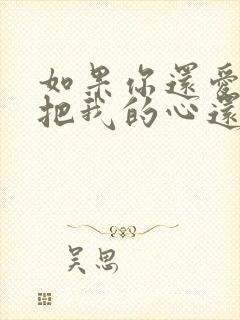 如果你還愛
把我的心還
吴思